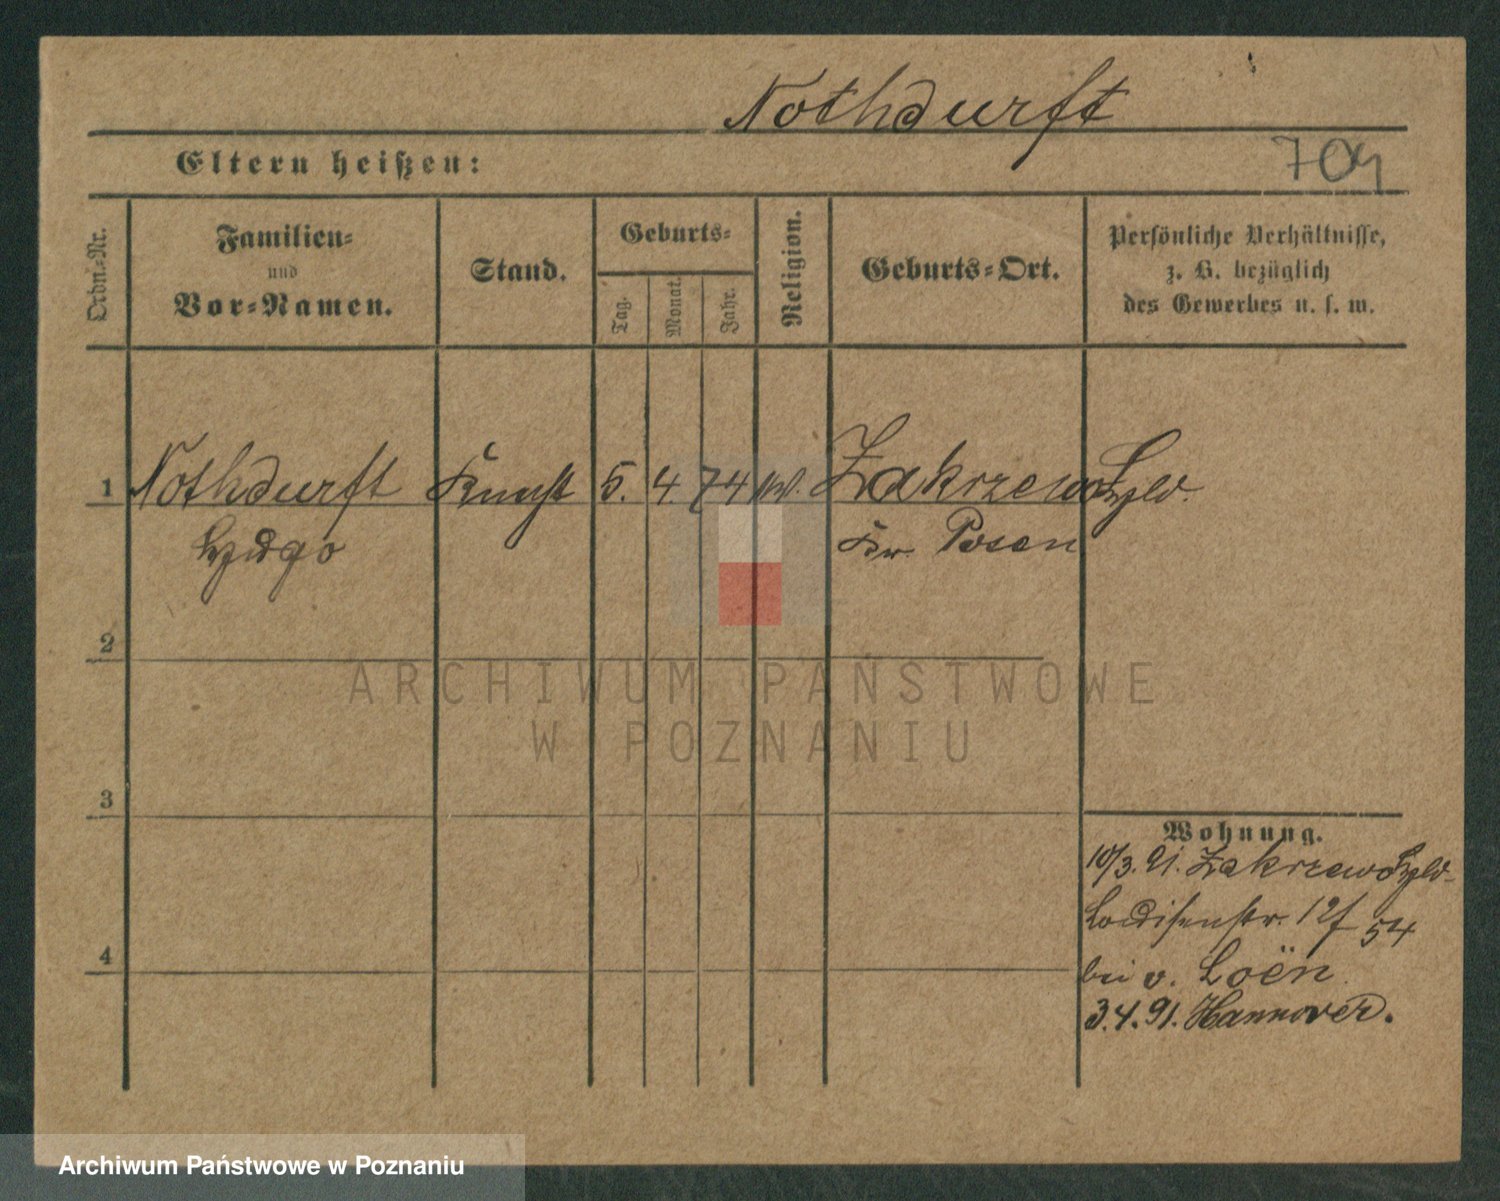 Nothdurft
Eltern heißen:
704
Ordn.-Nr.
Familien-
und
Vor-Namen.
Stand.
Geburts-
Tag.
Monat.
Jahr.
Religion.
Geburts-Ort.
Persönliche Verhältnisse,
z. B. bezüglich
des Gewerbes u. s. w.
1 Nothdurft 5. 4. 74 Zakrzewo
Hugo Kr. Posen
2
ARCHIWUM PAŃSTWOWE
W POZNANIU
3
4
Wohnung.
10/3. 91. Zakrzewo
Louisenstr. 12f 54
bei v. Loën.
3.4.91. Hannover.
Archiwum Państwowe w Poznaniu